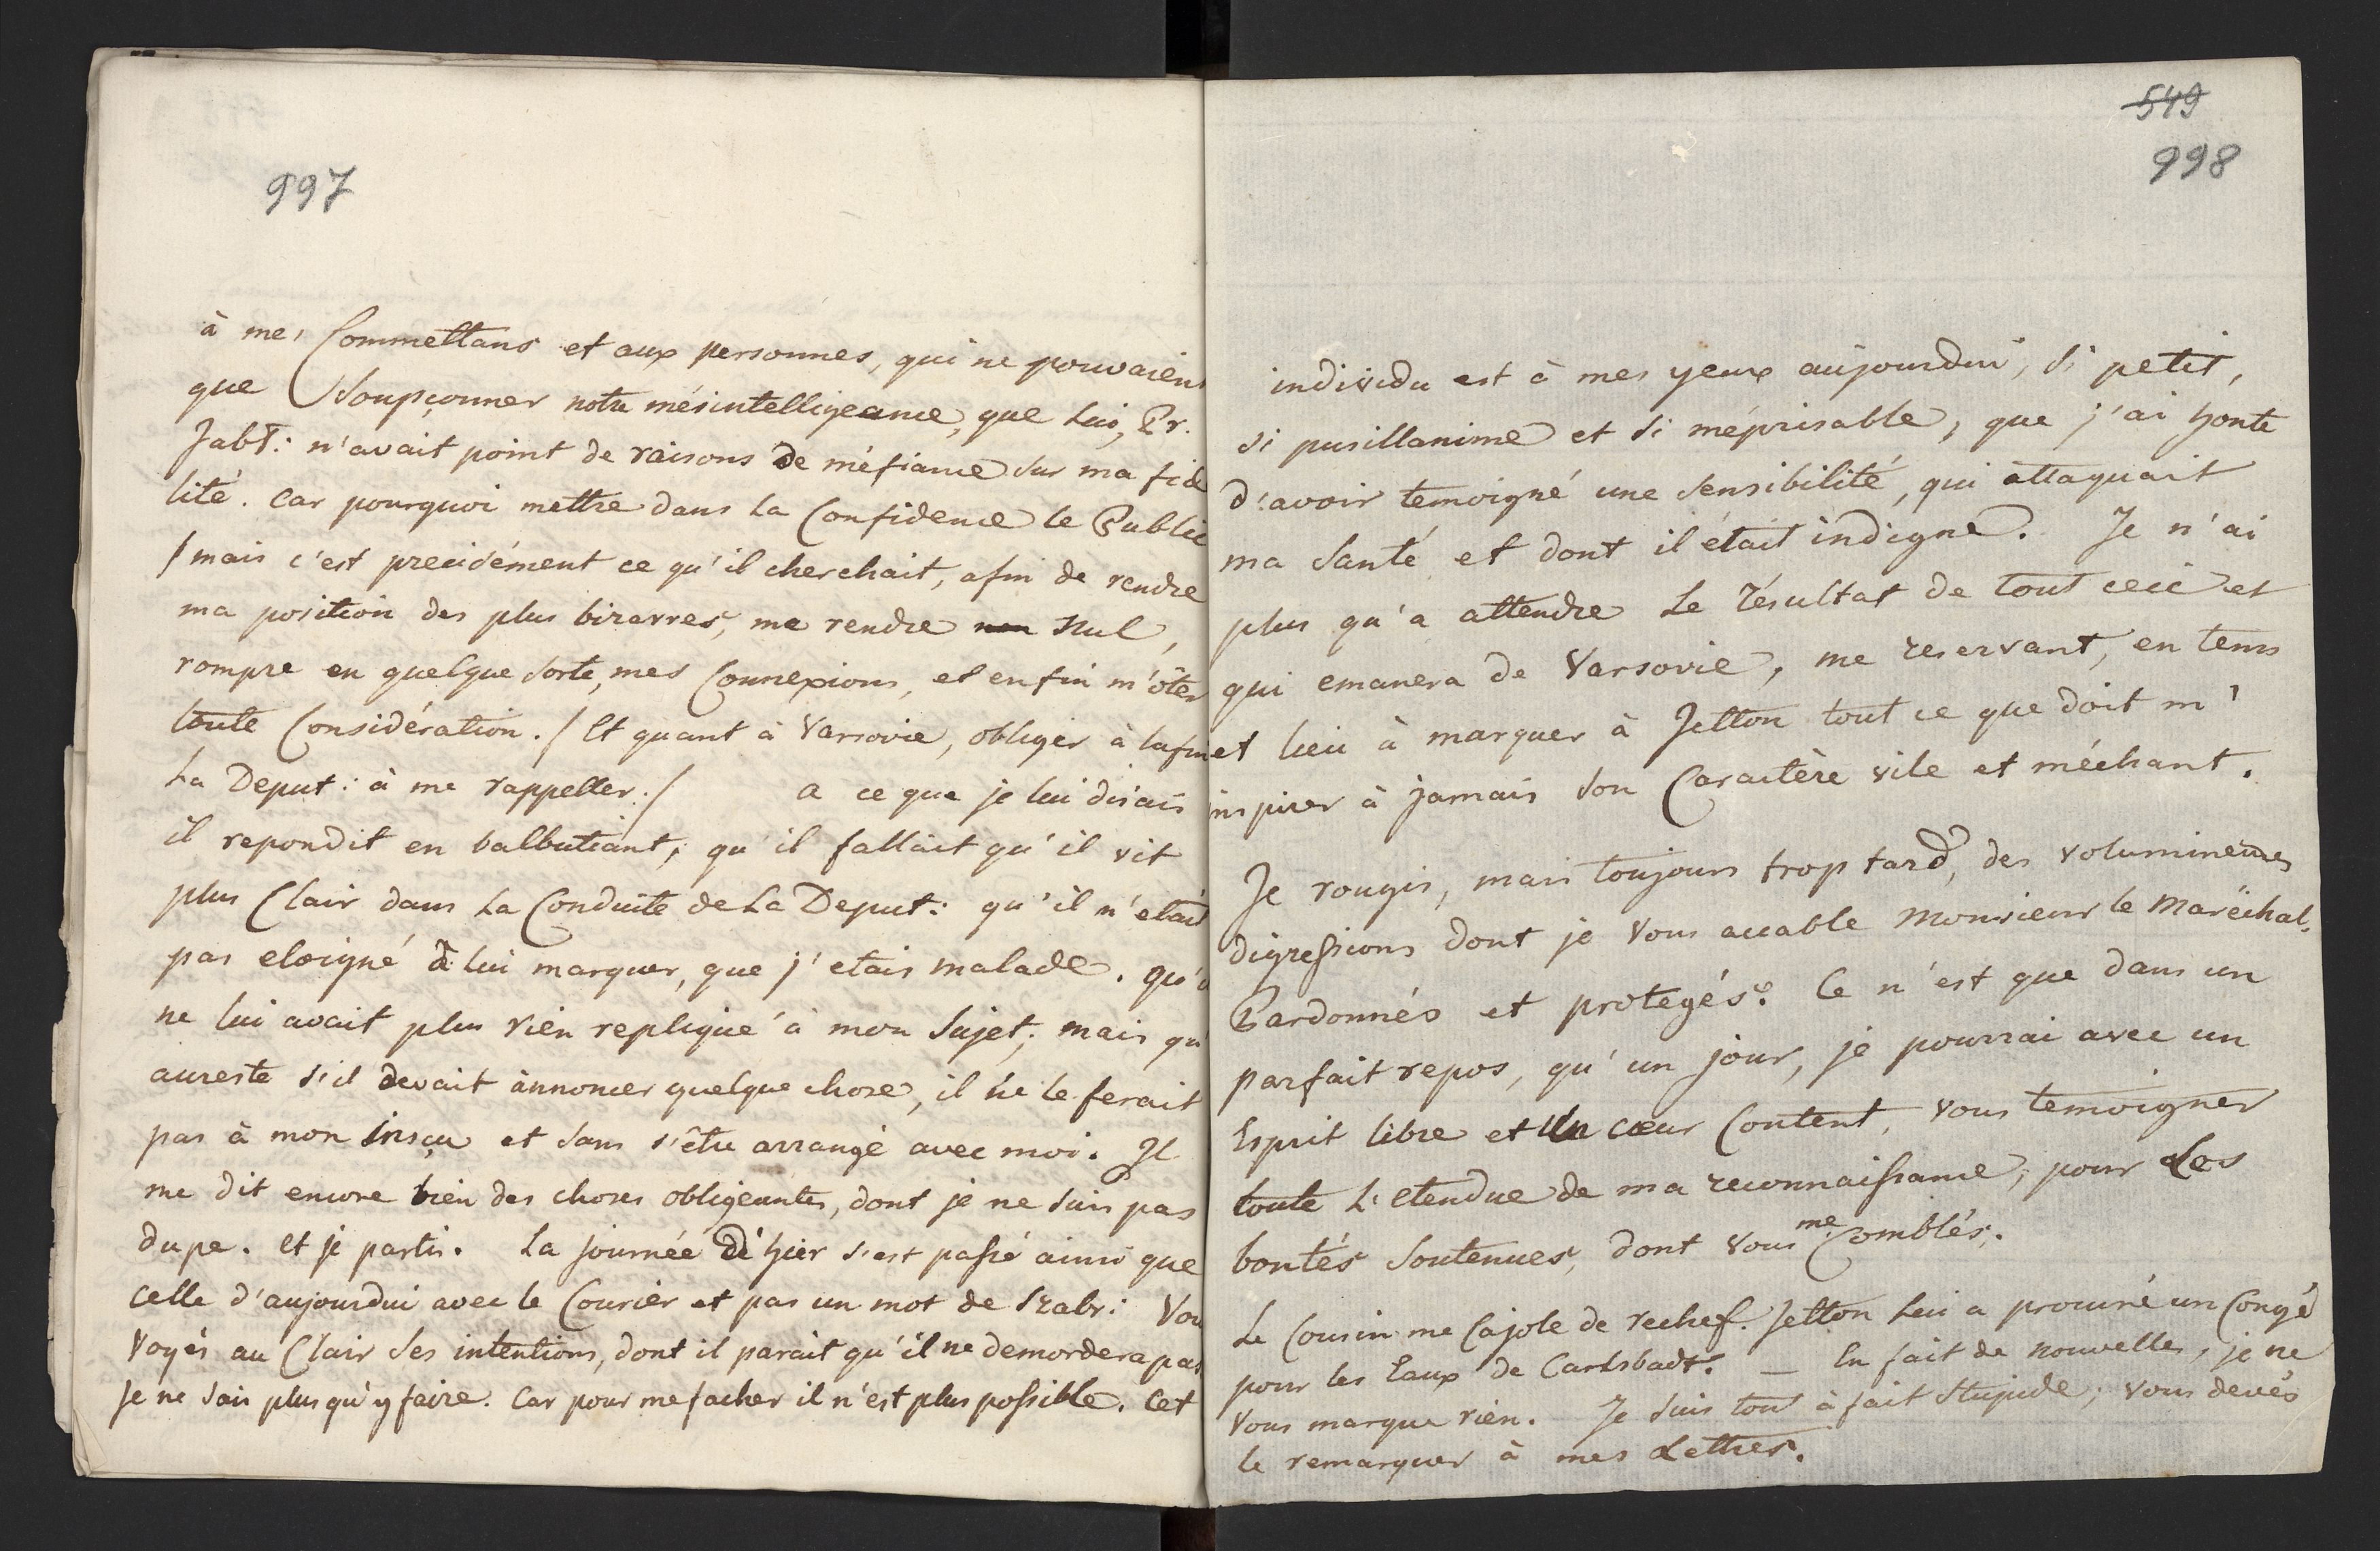 997
à mes Commettans et aux personnes, qui ne pouvaient
que Soupçonner notre mésintelligeance, que Lui, Pr.
Jabł: n'avait point de raisons de méfiance sur ma fide
lité. Car pourquoi mettre dans la Confidence le Public
/ mais c'est precisément ce qu'il cherchait, afin de rendre
ma position des plus bizarres, me rendre Nul,
rompre en quelque sorte, mes Connexions, et enfin m'ôter
toute Considération. / Et quant à Varsovie, obliger à lafin
La Deput: à me rappeller. / a ce que je lui disais
il repondit en balbutiant, qu'il fallait qu'il vit
plus Clair dans La Conduite de La Deput: qu'il n'etait
pas eloigné à lui marquer, que j'etais malade. qu'
ne lui avait plus rien repliqué à mon Sujet; mais qu'
aureste s'il devait annoncer quelque chose, il ne le ferait
pas à mon insçu et sans s'être arrangé avec moi. Il
me dit encore bien des choses obligeantes, dont je ne suis pas
dupe. et je partis. La journée d'hier s'est passé ainsi que
celle d'aujourdui avec le Courier et pas un mot de Szabr: Vou
voyés au Clair Ses intentions, dont il parait qu'il ne demordera pas
Je ne sais plus qu'y faire. Car pour me facher il n'est plus possible. Cet
549
998
individu est à mes yeux aujourdui, si petit,
si pusillanime et si méprisable, que j'ai honte
d'avoir temoigné une Sensibilité, qui attaquait
ma Santé et dont il était indigne. Je n'ai
plus qu'a attendre Le résultat de tout ceci et
qui emanera de Varsovie, me reservant, en tems
et lieu à marquer à Jetton tout ce que doit m'
inspirer à jamais son Caractère vile et méchant.
Je rougis, mais toujours trop tard, des volumineuses
digressions dont je Vous accable Monsieur le Maréchal.
Pardonnés et protegés. Ce n'est que dans un
parfait repos, qu'un jour, je pourrai avec un
Esprit libre et Un cœur Content, vous temoigner
toute L'etendue de ma reconnaissance, pour Les
bontés Soutenues, dont Vous me Comblés.
Le Cousin me Cajole de rechef. Jetton Lui a procuré un Congé
pour les Eaux de Carlsbadt. — En fait de nouvelles, je ne
Vous marque rien. Je suis tout à fait Stupide; vous devés
le remarquer à mes Lettres.